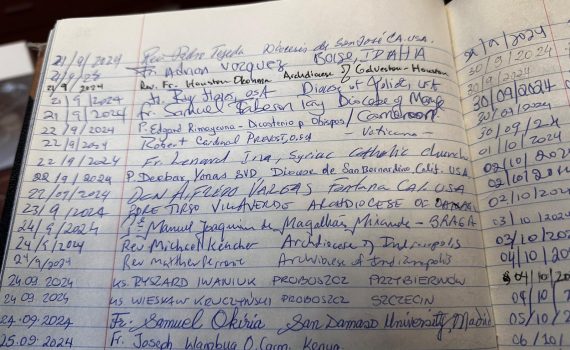 21/9/2024 Rev. Pedro Tejeda Diocesis de San José CA. USA.
21/9/24 Fr. Adrian Vazquez BOISE, IDAHA
21/9/2024 Rev. Fr. Houston Okonma Archdiocese of Galveston-Houston
21/9/2024 Fr. OSA Diocese of USA
21/9/2024 Fr. Samuel Diocese of Cameroon
22/9/2024 P. Edgard Rimaycuna - Dicasterio p. Obispos/
22/9/2024 Robert Cardinal Prevost, O.S.A. Vaticano
22/9/2024 Fr. Lenard Ina, Syriac Catholic Church
22/9/2024 P. Derbar Yonas SVD Diocese de San Bernardino, Calif. USA
22/09/2024 DON ALFREDO VARGAS Fontana CAL. USA
23/9/2024 PDRE TIRSO VILLAVERDE ARCHDIOCESE OF
24/9/2024 Pe Manuel Joaquim de Magalhães Miranda - BRAGA
24/9/2024 Rev Michael Keucher Archdiocese of Indianapolis
24/9/2024 Rev Matthew Perronie Archdiocese of Indianapolis
24.09.2024 KS. RYSZARD IWANIUK PROBOSZCZ PRZYBIERNÓW
24.09.2024 KS WIESŁAW KRUCZYŃSKI PROBOSZCZ SZCZECIN
24.09.2024 Fr. Samuel Okiria San Damaso University, Madrid
25.09.2024 Fr. Joseph Wambua O.Carm. Kenya
30/9/2024
30/9/2024
30/9/2024
30/09/2024
30/09/2024
30/09/24
02/10/2024
02/10/2024
02/10/2024
02/10/2024
03/10/2024
03/10/2024
04/10/2024
04/10/20
04/10/2
05/10/2
06/10/